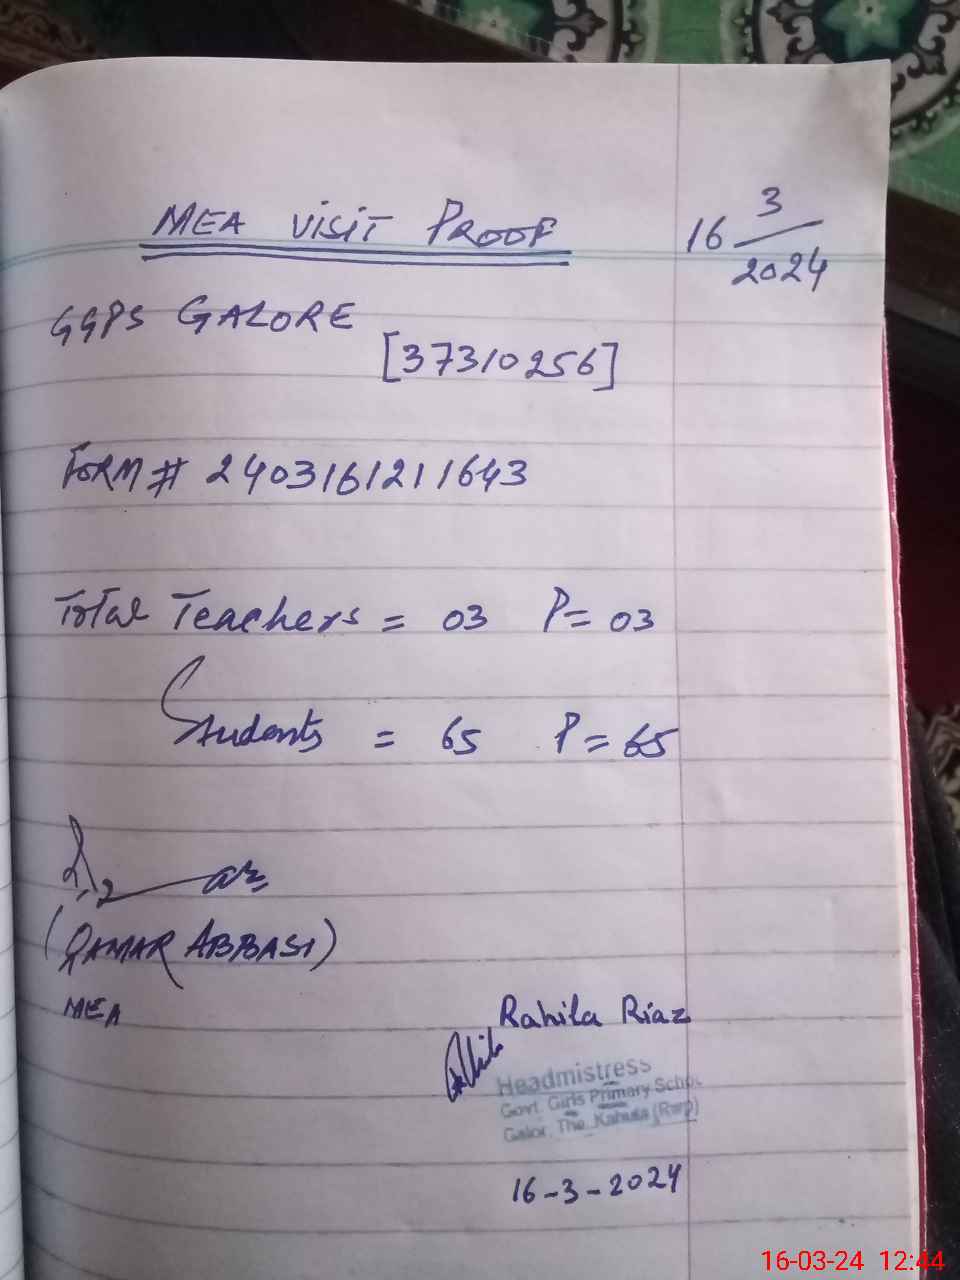 MEA VISIT PROOF
16 3/2024
GGPS GALORE
[37310256]
FORM # 2403161211643
Total Teachers = 03 P= 03
Students = 65 P = 65
(QAMAR ABBASI)
MEA
Rahila Riaz
Headmistress
Govt. Girls Primary Schoo
Galor, The. Kahuta (Rwp)
16-3-2024
16-03-24 12:44